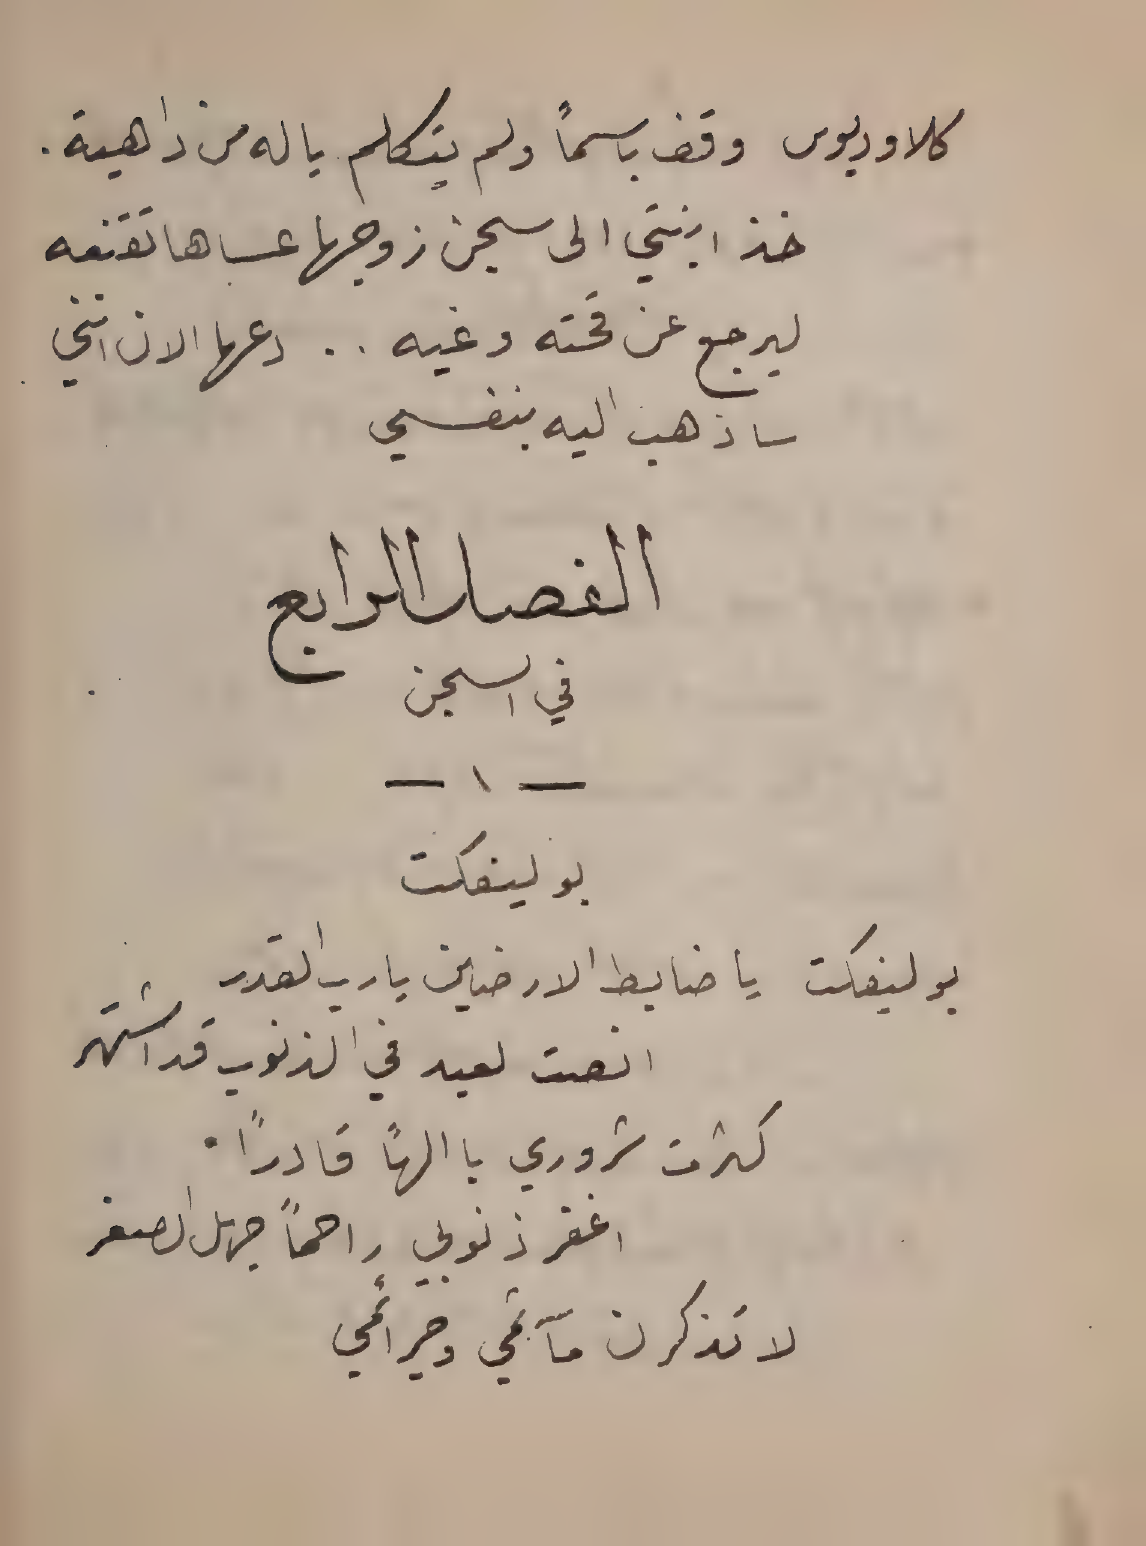 كلاوديوس وقف باسماً ولم يتكلم يا له من داهية .
خذ ابنتي الى سجن زوجها عساها تقنعه
ليرجع عن قحته وغيه . . دعها الان انني
ساذهب اليه بنفسي
الفصل الرابع
في السجن
— ١ —
بوليفكت
بوليفكت يا ضابط الارضين يا رب القدر
انصت لعبد في الذنوب قد اشتهر
كثرت شروري يا الهًا قادرًا .
اغفر ذنوبي راحماً جهل الصغر
لا تذكرن مآثمي وجرائمي